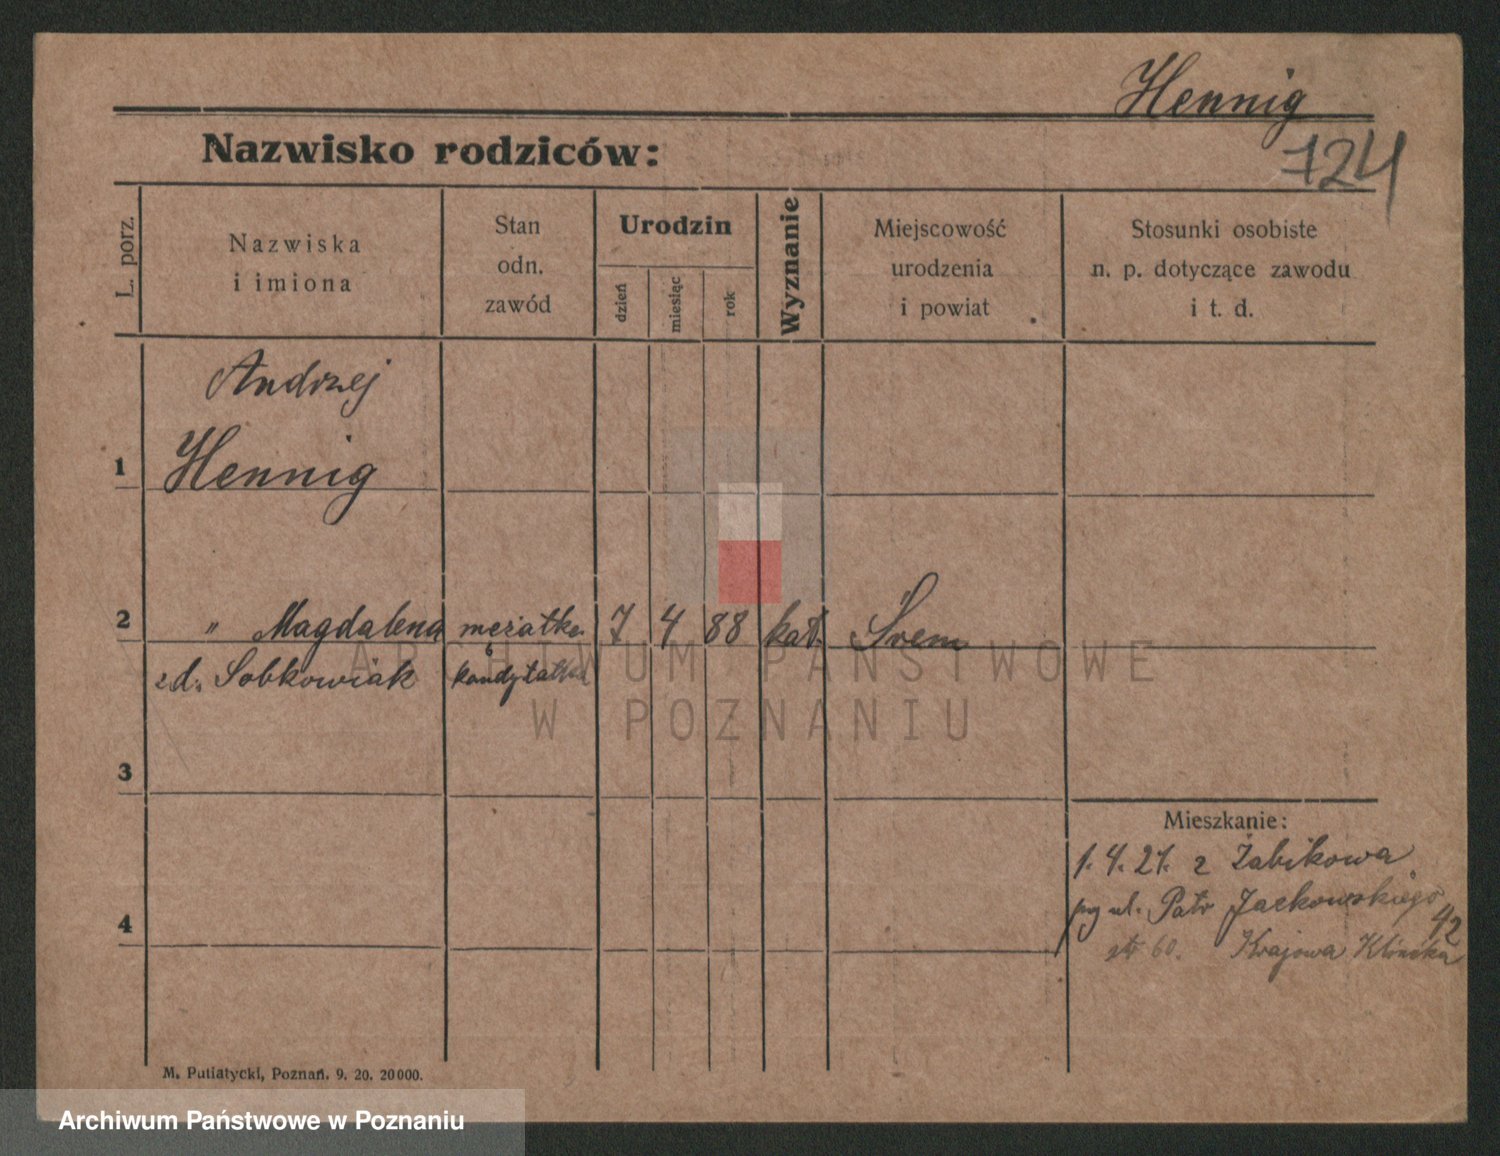 Hennig
724
Nazwisko rodziców:
L. porz.
Nazwiska
i imiona
Stan
odn.
zawód
Urodzin
dzień
miesiąc
rok
Wyznanie
Miejscowość
urodzenia
i powiat
Stosunki osobiste
n. p. dotyczące zawodu
i t. d.
Andrzej
1
Hennig
2 " Magdalena mężatka 7 4 88 kat. Śrem
zd. Sobkowiak
3
Mieszkanie:
1. 4. 21. z Żabikowa
ul. Patr Jackowskiego
42
4
60. Krajowa
M. Putiatycki, Poznań. 9. 20. 20000.
ARCHIWUM PAŃSTWOWE
W POZNANIU
Archiwum Państwowe w Poznaniu